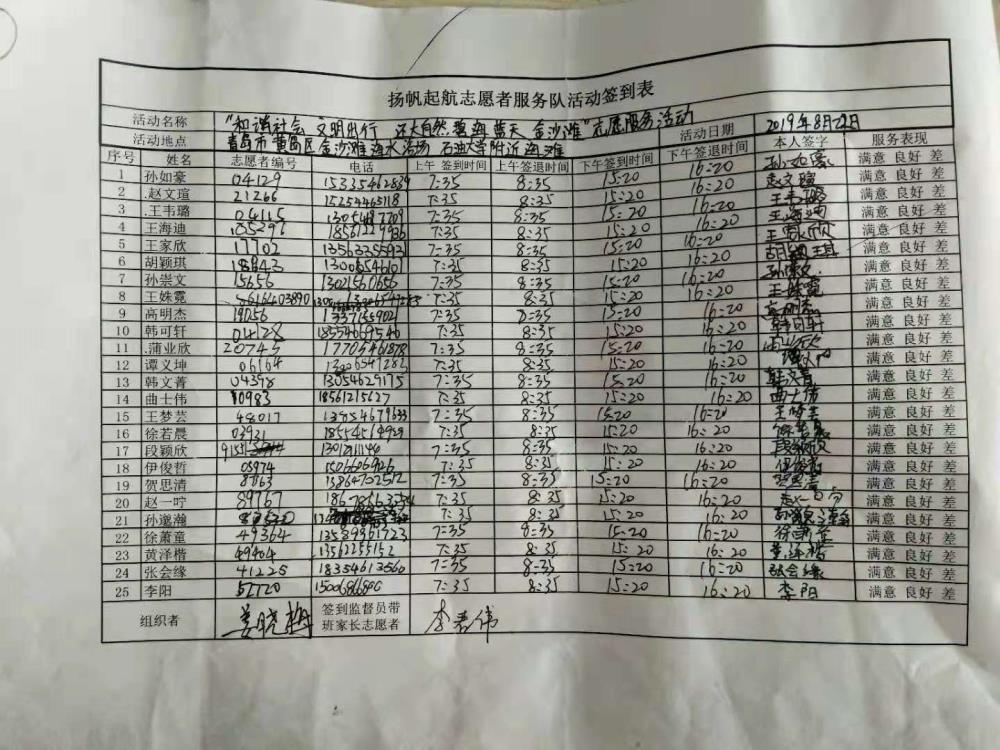 扬帆起航志愿者服务队活动签到表
活动名称 "和谐社会 文明出行 还大自然碧海蓝天 金沙滩"志愿服务活动 活动日期 2019年8月22日
活动地点 青岛市黄岛区金沙滩海水浴场 石油大学附近海滩 本人签字 服务表现
序号 姓名 志愿者编号 电话 上午 签到时间 上午签退时间 下午签到时间 下午签退时间
1 孙如豪 04129 7:35 8:35 15:20 16:20 孙如豪 满意 良好 差
2 .赵文瑄 21266 15254465118 7:35 8:35 15:20 16:20 赵文瑄 满意 良好 差
3 .王韦璐 04115 7:35 8:35 15:20 16:20 王韦璐 满意 良好 差
4 王海迪 7:35 8:35 15:20 16:20 王海迪 满意 良好 差
5 王家欣 17702 7:35 8:35 15:20 16:20 王家欣 满意 良好 差
6 胡颖琪 18943 13006546101 7:35 8:35 15:20 16:20 胡颖琪 满意 良好 差
7 孙崇文 15656 13021560656 7:35 8:35 15:20 16:20 孙崇文 满意 良好 差
8 王姝霓 7:35 8:35 15:20 16:20 王姝霓 满意 良好 差
9 高明杰 19056 7:35 8:35 15:20 16:20 高明杰 满意 良好 差
10 韩可轩 04128 18554669540 7:35 8:35 15:20 16:20 韩可轩 满意 良好 差
11 .蒲业欣 20745 17705461878 7:35 8:35 15:20 16:20 满意 良好 差
12 谭义坤 06164 7:35 8:35 15:20 16:20 满意 良好 差
13 韩文菁 04398 13054629175 7:35 8:35 15:20 16:20 韩文菁 满意 良好 差
14 曲士伟 10983 18561215627 7:35 8:35 15:20 16:20 曲士伟 满意 良好 差
15 王梦芸 48017 13954679633 7:35 8:35 15:20 16:20 满意 良好 差
16 徐若晨 03931 7:35 8:35 15:20 16:20 满意 良好 差
17 段颖欣 7:35 8:35 15:20 16:20 段颖欣 满意 良好 差
18 伊俊哲 05974 7:35 8:35 15:20 16:20 伊俊哲 满意 良好 差
19 贺思清 8763 13964702512 7:35 8:35 15:20 16:20 贺思清 满意 良好 差
20 赵一咛 89767 7:35 8:35 15:20 16:20 赵一咛 满意 良好 差
21 孙邈瀚 7:35 8:35 15:20 16:20 满意 良好 差
22 徐萧童 49364 13589961723 7:35 8:35 15:20 16:20 徐萧童 满意 良好 差
23 黄泽楷 49404 13562255152 7:35 8:35 15:20 16:20 黄泽楷 满意 良好 差
24 张会缘 41225 18354613560 7:35 8:35 15:20 16:20 张会缘 满意 良好 差
25 李阳 52720 7:35 8:35 15:20 16:20 李阳 满意 良好 差
组织者 姜晓梅 签到监督员带
班家长志愿者 李春伟